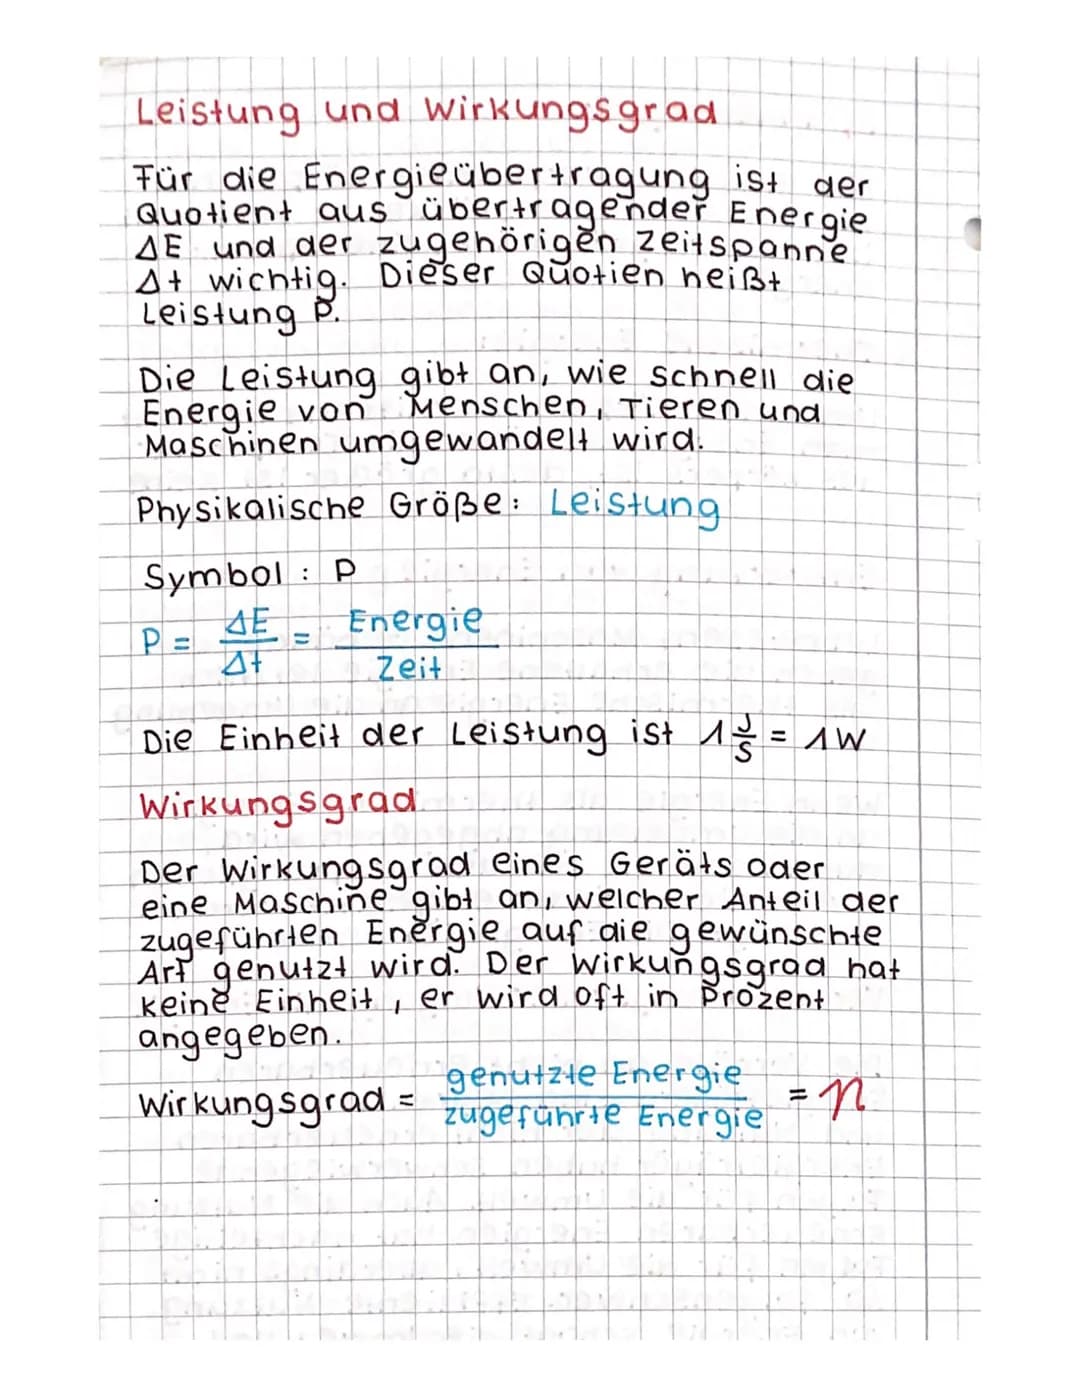 Leistung und Wirkungsgrad
Für die Energieübertragung ist der
Quotient aus übertragender Energie
ΔE und der zugehörigen Zeitspanne
Δt wichtig. Dieser Quotien heißt
Leistung P.
Die Leistung gibt an, wie schnell die
Energie von Menschen, Tieren und
Maschinen umgewandelt wird.
Physikalische Größe: Leistung
Symbol : P
P = ΔE/Δt = Energie/Zeit
Die Einheit der Leistung ist 1 J/s = 1W
Wirkungsgrad
Der Wirkungsgrad eines Geräts oder
eine Maschine gibt an, welcher Anteil der
zugeführten Energie auf die gewünschte
Art genutzt wird. Der Wirkungsgrad hat
keine Einheit, er wird oft in Prozent
angegeben.
Wirkungsgrad = genutzte Energie/zugeführte Energie = η